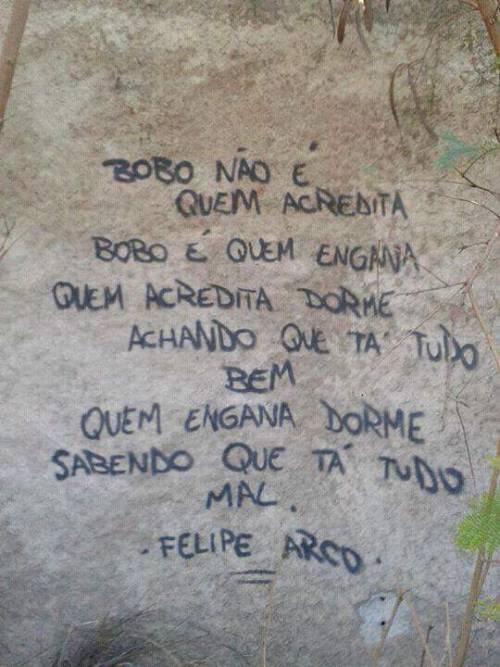 BOBO NÃO É
QUEM ACREDITA
BOBO É QUEM ENGANA
QUEM ACREDITA DORME
ACHANDO QUE TÁ TUDO
BEM
QUEM ENGANA DORME
SABENDO QUE TÁ TUDO
MAL.
. FELIPE ARCO.